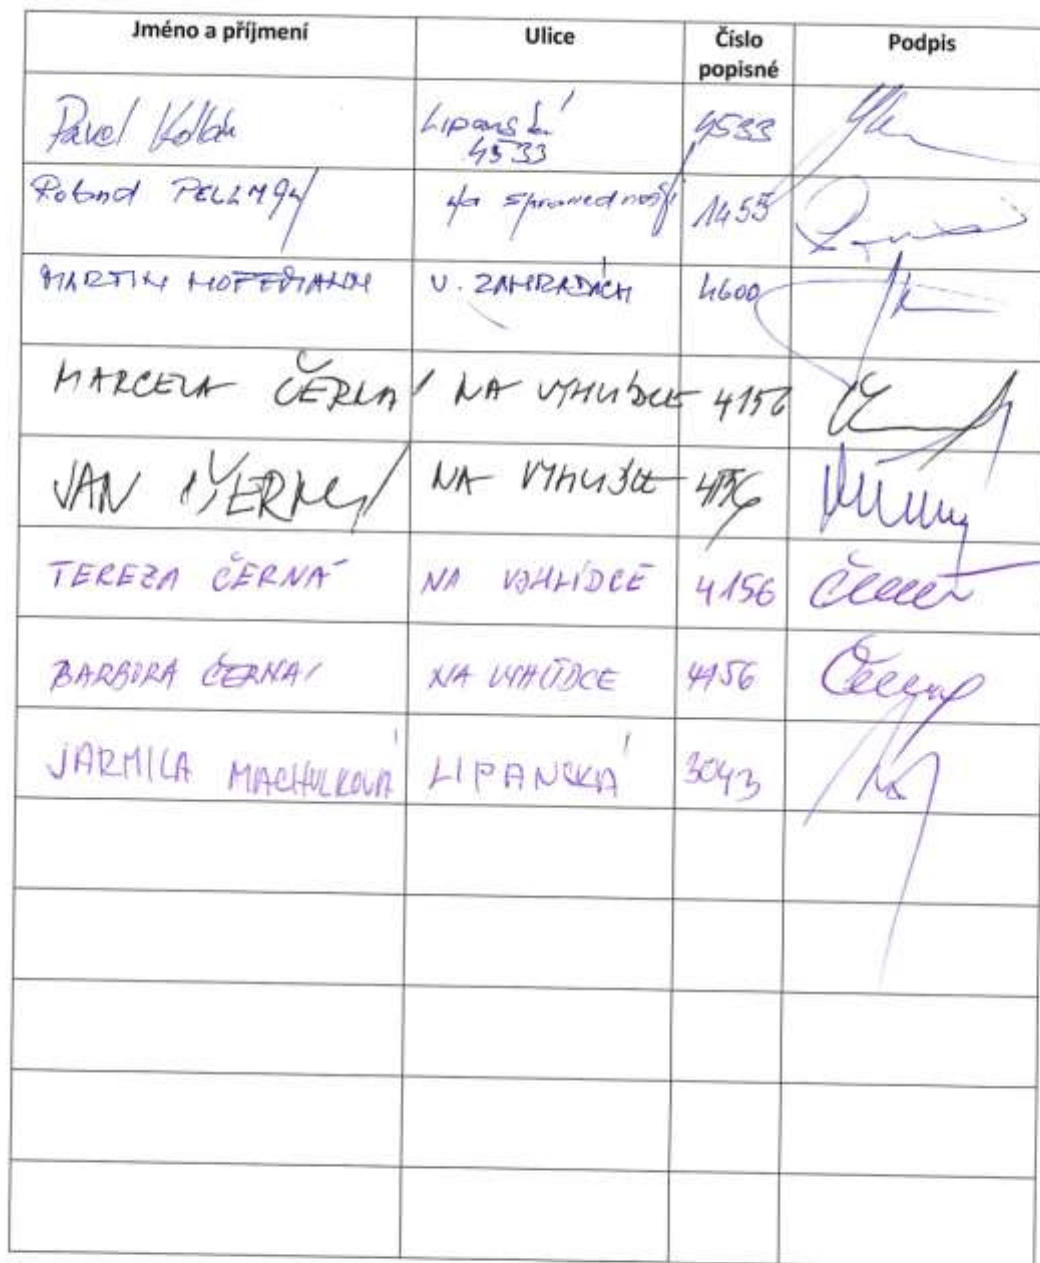 Jméno a příjmení Ulice Číslo popisné Podpis
Pavel Kollár Lipanská 4533 4533
Roland PELLMAN Na Spravedlnosti 1455
MARTIN HOFFMANN U ZAHRÁDÁCH 4600
MARCELA ČERNÁ NA VYHLÍDCE 4156
JAN ČERNÝ NA VYHLÍDCE 4156
TEREZA ČERNÁ NA VYHLÍDCE 4156
BARBORA ČERNÁ NA VYHLÍDCE 4156
JARMILA MACHULKOVÁ LIPANSKÁ 3043